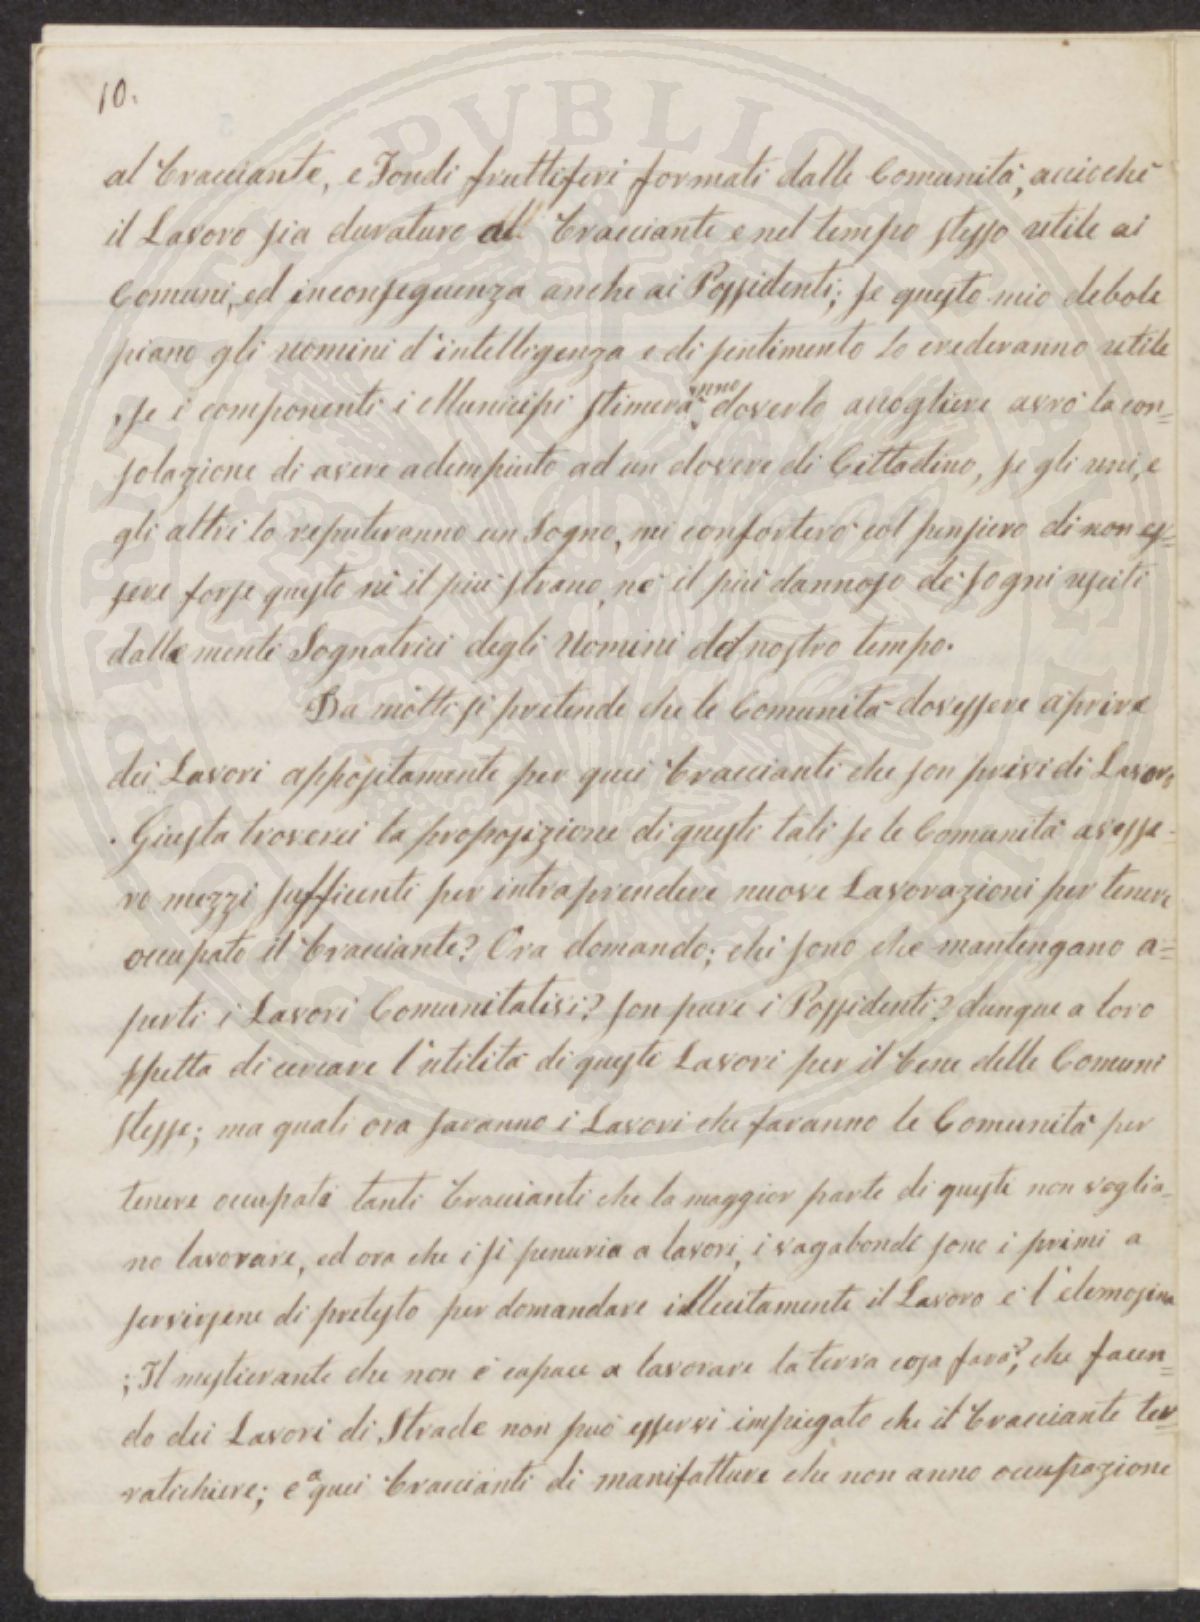 10.
al Bracciante, e Fondi fruttiferi formati dalle Comunità, acciocchè
il Lavoro sia duraturo al Bracciante e nel tempo stesso utile ai
Comuni, ed inconseguenza anche ai Possidenti; se questo mio debole
piano gli uomini d'intelligenza e di sentimento lo crederanno utile
, se i componenti i Municipi stimeranno doverlo accogliere avrò la con=
solazione di avere adempiuto ad un dovere di Cittadino, se gli uni, e
gli altri lo reputeranno un Sogno, mi conforterò col pensiero di non es=
sere forse questo nè il più strano, nè il più dannoso de' sogni usciti
dalle menti Sognatrici degli Uomini del nostro tempo.
Da molti si pretende che le Comunità dovessere aprire
dei Lavori appositamente per quei Braccianti che son privi di Lavoro
. Giusta troverei la proposizione di questi tali se le Comunità avesse-
ro mezzi sufficenti per intraprendere nuove Lavorazioni per tenere
occupato il Bracciante? Ora domando; chi sono che mantengano a=
perti i Lavori Comunitativi? son pure i Possidenti? dunque a loro
spetta di cercare l'utilità di queste Lavori per il bene delle Comuni
stesse; ma quali ora saranno i Lavori che faranno le Comunità per
tenere occupati tanti Braccianti che la maggior parte di questi non voglia=
no lavorare, ed ora che i si penuria a lavori, i vagabondi sono i primi a
servirsene di pretesto per domandare illecitamente il Lavoro e l'elemosina
; Il mestierante che non è capace a lavorare la terra cosa farà?, che facen=
do dei Lavori di Strade non può esservi impiegato che il Bracciante ter=
ratichiere; e a quei Braccianti di manifatture che non anno occupazione
PVBLICA